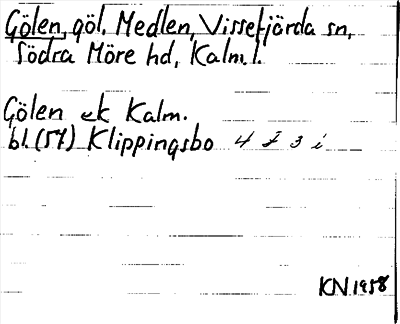 Gölen, göl, Medlen, Vissefjärda sn,
Södra Möre hd, Kalm. l.
Gölen ek Kalm.
bl. (57) Klippingsbo 4 I 3 i
KN 1958